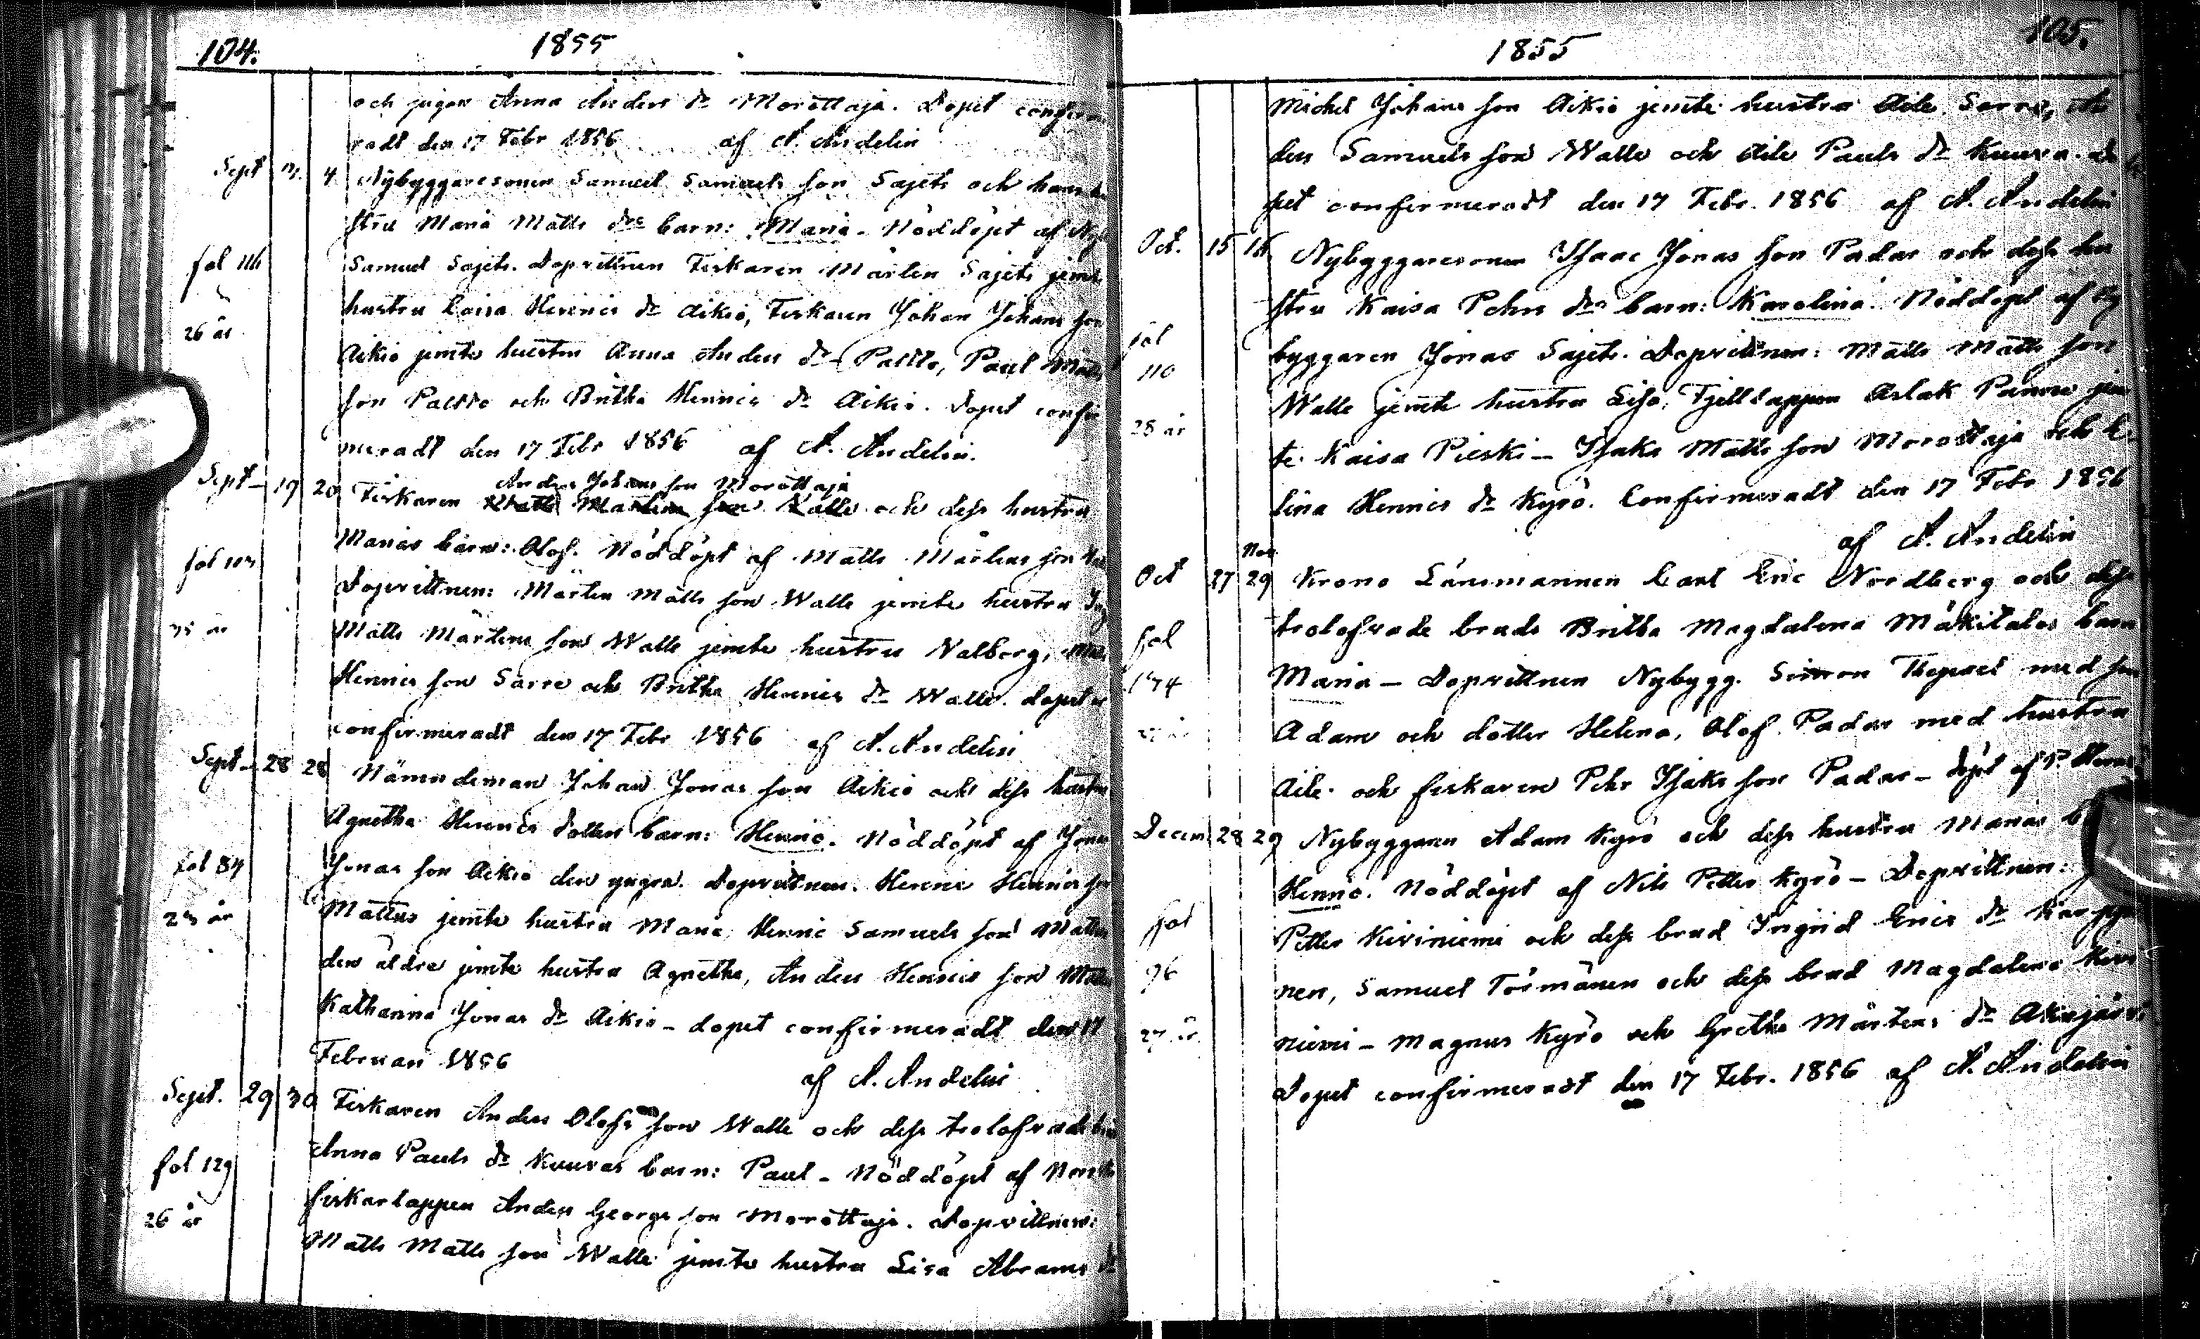 104. 1855
och pigan Anna Anders dr Morottaja. Dopet confir
radt den 17 Febr 1856 af A. Andelin
Sept 4 Nybyggaresonen Samuel Samuels son Sajets och hans
stru Maria Matts drs barn: Maria - Nöddöpt af
fol 116 Samuel Sajets. Dopvittnen Fiskaren Mårten Sajets jemte
hustru Caisa Hennics dr Aikio, Fiskaren Johan Johans son
26 år Aikio jemte hustru Anna Anders dr Paltto, Paul Matts
son Paltto och Britha Hennics dr Aikio. Dopet confir
meradt den 17 Febr 1856 af A. Andelin.
Anders Johans son Morottaja
Sept 19 20 Fiskaren Matts Mårtens son Walle och dess hustru
Marias barn: Olof. Nöddöpt af Matts Mårtens son
fol Dopvittnen: Mårten Matts son Walle jemte hustru
35 år Matts Mårtens son Walle jemte hustru Valborg,
Hennics son Sarre och Britha Hennics dr Walle. Dopet
confirmeradt den 17 Febr 1856 af A. Andelin
Sept. 28 28 Nämndeman Johan Jonas son Aikio och dess hustru
Agnetha Hennics dotters barn: Hennic. Nöddöpt af Jonas
fol 84 Jonas son Aikio den yngre. Dopvittnen. Hennic Hennics son
Mattus jemte hustru Maria, Hennic Samuels son Mattus
den äldre jemte hustru Agnetha, Anders Hennics son
Katharina Jonas dr Aikio - dopet confirmeradt den 17
Februari 1856 af A. Andelin
Sept. 29 30 Fiskaren Anders Olofs son Walle och dess trolofvade
fol 129 Anna Pauls dr Kuuvas barn: Paul - Nöddöpt af
26 år fiskarlappen Anders Georgs son Morottaja. Dopvittnen:
Matts Matts son Walle jemte hustru Lisa Abrams dr
105.
1855
Michel Johans son Aikio jemte hustru Aile Sarre, An
ders Samuels son Walle och Aile Pauls dr Kuuva. Do
pet confirmeradt den 17 Febr. 1856 af A. Andelin
Oct. 15 16 Nybyggaresonen Isaac Jonas son Padar och dess hu
stru Kaisa Pehrs drs barn: Karolina. Nöddöpt af Ny
fol 110 byggaren Jonas Sajets. Dopvittnen: Matts Matts son
28 år Walle jemte hustru Lisa, Fjellappen Aslak jem
te Kaisa Pieski - Isaks Matts son Morottaja och
lina Hennics dr Kyrö. Confirmeradt den 17 Febr 1856
af A. Andelin
Nov
Oct 27 29 Krono Länsmannen Carl Eric Nordberg och dess
fol trolofvade brud Britha Magdalena Mäkitalos barn
174 Maria - Dopvittnen Nybygg. Simon Thepael med son
Adam och dotter Helena, Olof Padar med hustru
Aile och fiskaren Pehr Isaks son Padar - döpt af P.
Decem 28 29 Nybyggaren Adam Kyrö och dess hustru Marias
Hennic. Nöddöpt af Nils Petter Kyrö - Dopvittnen:
fol Petter Kiviniemi och dess brud Ingrid Erics dr
96 nen, Samuel Törmänen och dess brud Magdalena Kivi
27 år niemi - Magnus Kyrö och Gretha Mårtens dr Akujärvi
Dopet confirmeradt den 17 Febr. 1856 af A. Andelin